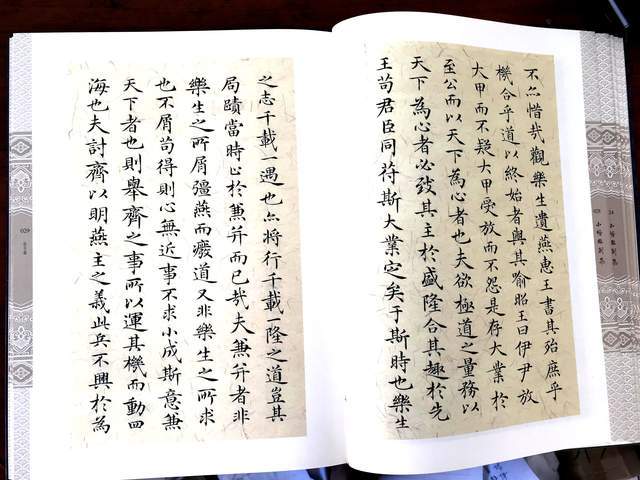 不亦惜哉觀樂生遺燕惠王書其殆庶乎
機合乎道以終始者與其喻昭王曰伊尹放
大甲而不疑大甲受放而不怨是存大業於
至公而以天下為心者也夫欲極道之量務以
天下為心者必致其主於盛隆合其趣於先
王苟君臣同符斯大業定矣于斯時也樂生
之志千載一遇也亦將行千載一隆之道豈其
局蹟當時止於兼并而已哉夫兼并者非
樂生之所屑彊燕而廢道又非樂生之所求
也不屑苟得則心無近事不求小成斯意兼
天下者也則舉齊之事所以運其機而動四
海也夫討齊以明燕主之義此兵不興於為
029